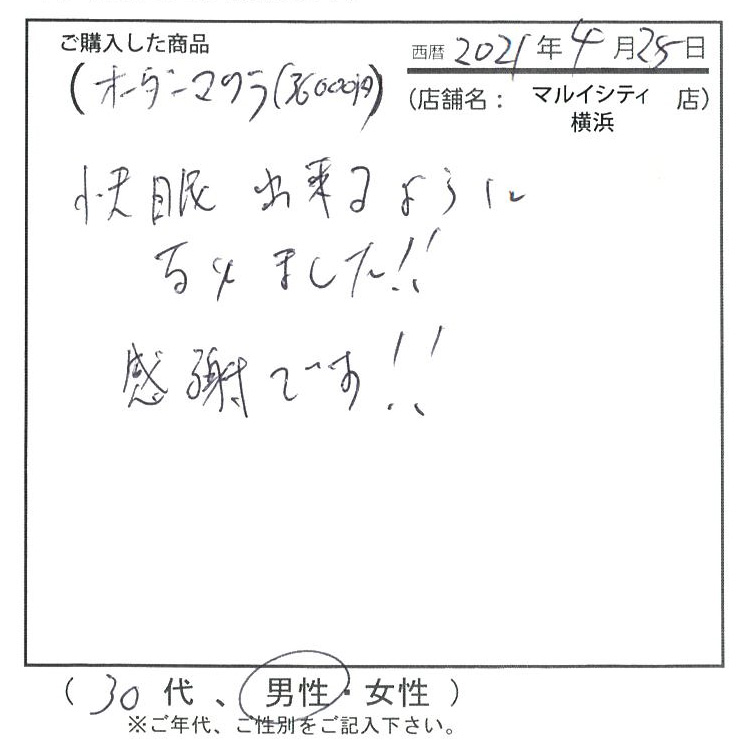 ご購入した商品
西暦 2021年4月25日
(オーダーマクラ(36000円))
(店舗名: マルイシティ横浜 店)
快眠出来るように
なりました!!
感謝です!!
(30代、男性・女性)
※ご年代、ご性別をご記入下さい。